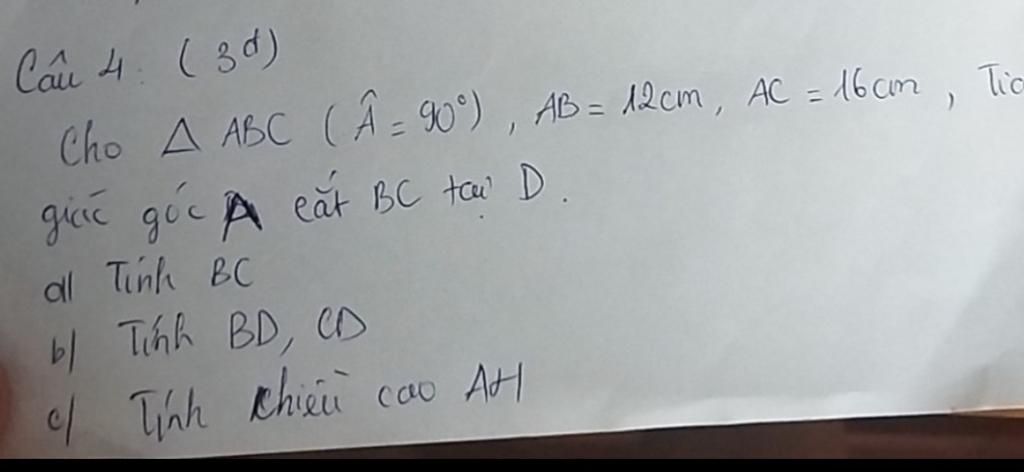 Câu 4: (3đ)
Cho △ ABC (Â = 90°), AB = 12cm, AC = 16cm,
giác góc A cắt BC tại D.
a) Tính BC
b) Tính BD, CD
c) Tính chiều cao AH